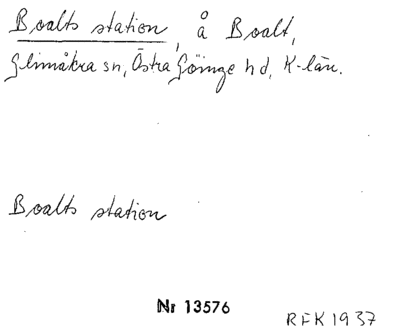 Boalts station, å Boalt,
Glimåkra sn, Östra Göinge hd, K-län.
Boalts station
Nr 13576
RFK 1937